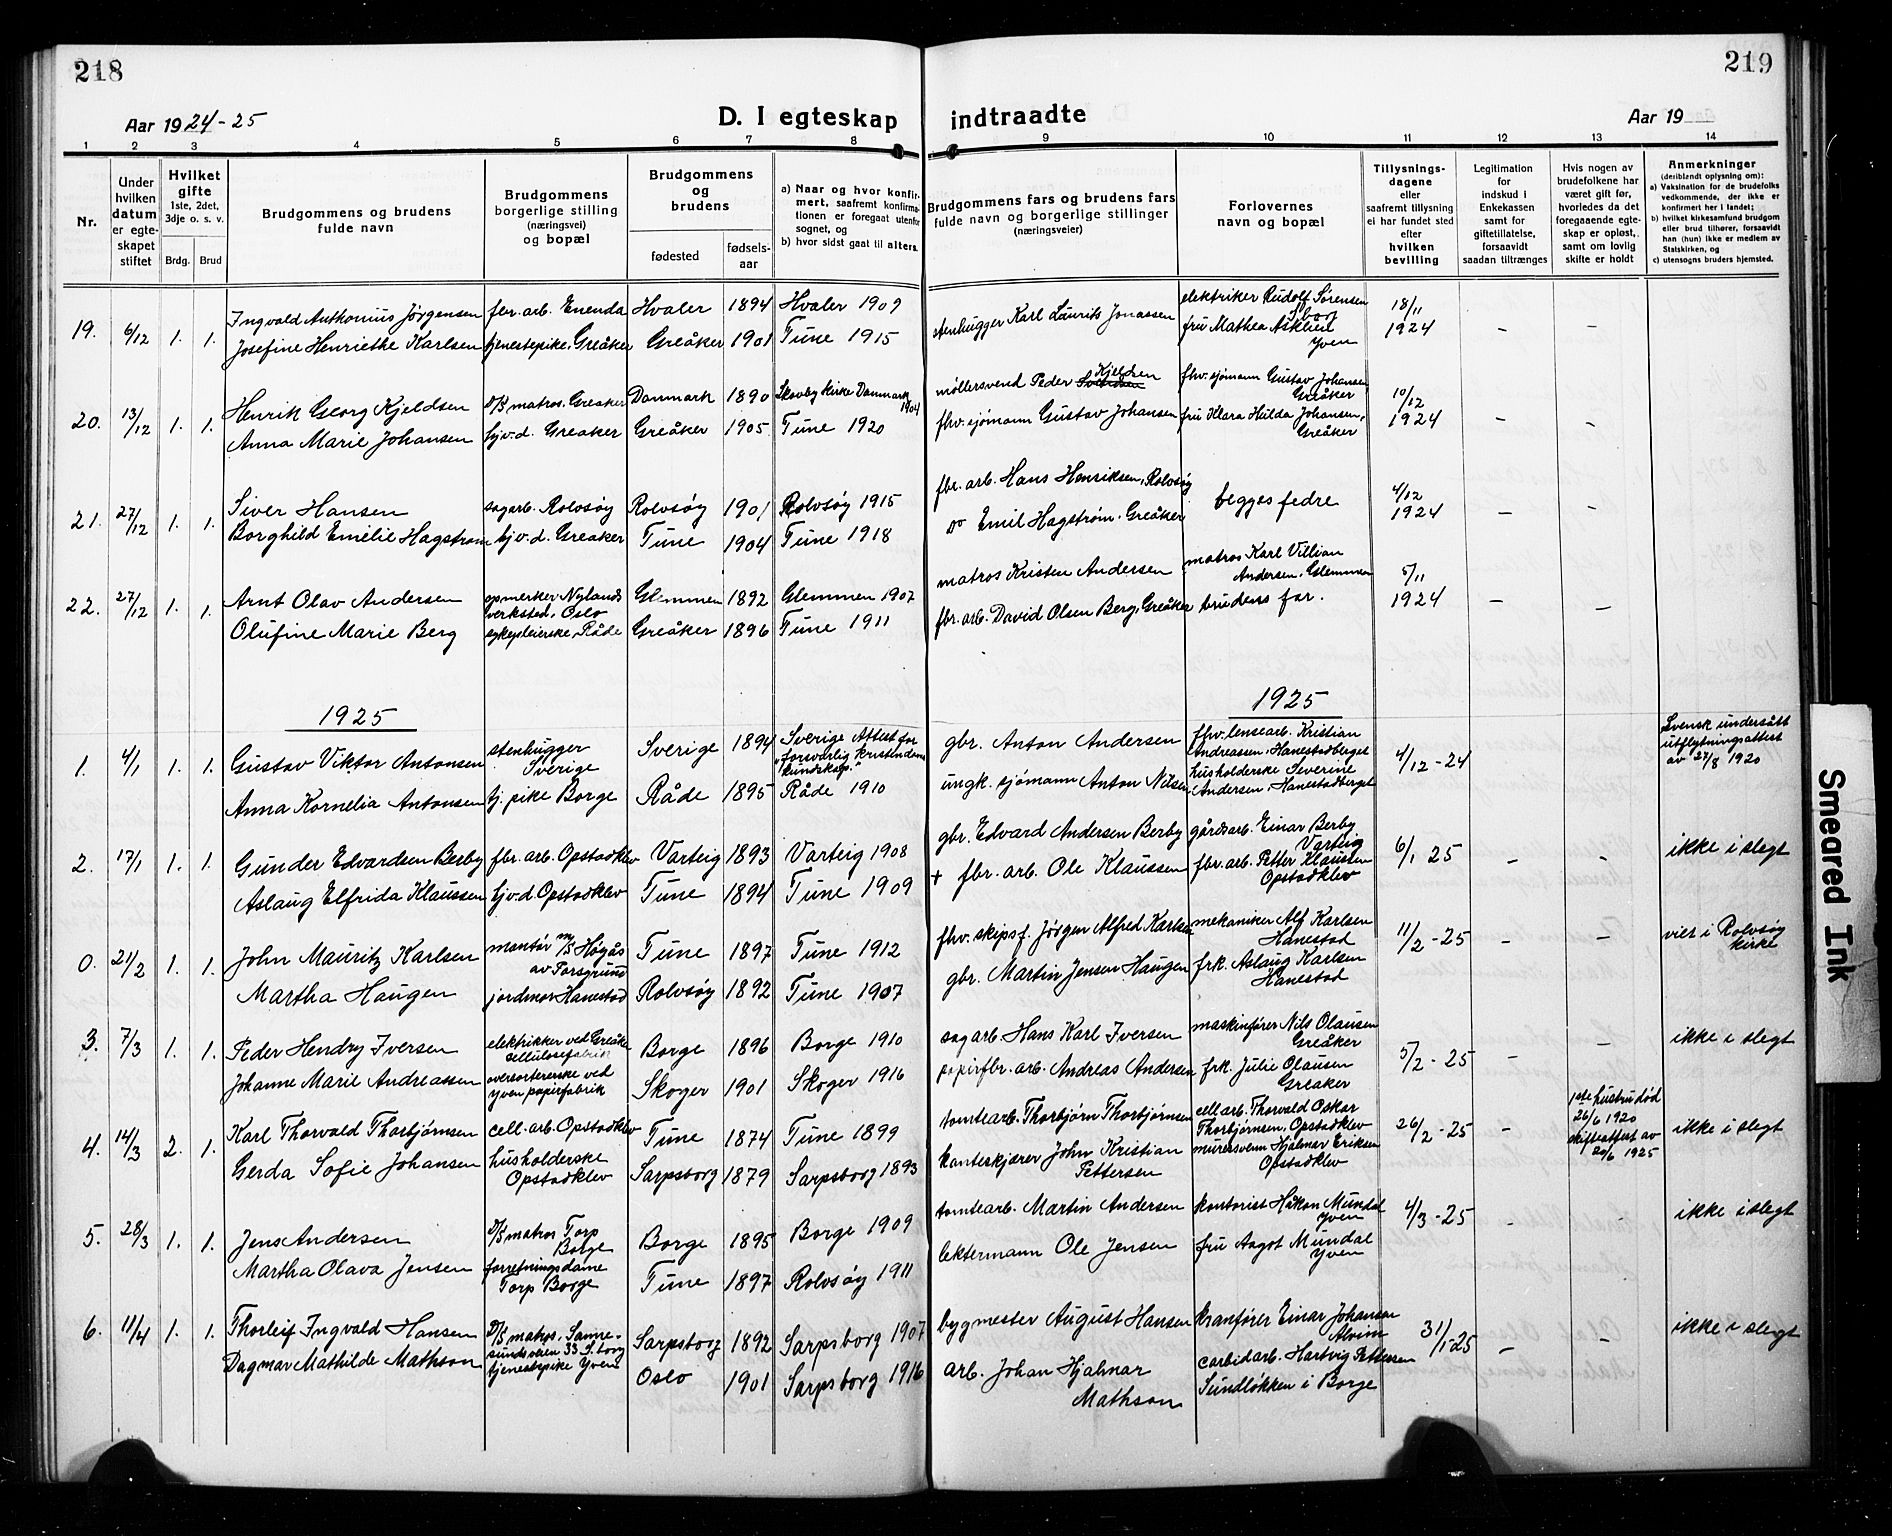 218
219
Aar 1924-25
D. I egteskap indtraadte
Aar 19
1 2 3 4 5 6 7 8 9 10 11 12 13 14
Nr.
Under hvilken datum er egteskapet stiftet
Hvilket gifte 1ste, 2det, 3dje o. s. v.
Brdg. Brud
Brudgommens og brudens fulde navn
Brudgommens borgerlige stilling (næringsvei) og bopæl
Brudgommens og brudens
fødested
fødsels-aar
a) Naar og hvor konfirmert, saafremt konfirmationen er foregaat utenfor sognet, og
b) hvor sidst gaat til alters.
Brudgommens fars og brudens fars fulde navn og borgerlige stillinger (næringsveier)
Forlovernes navn og bopæl
Tillysningsdagene eller saafremt tillysning ei har fundet sted efter hvilken bevilling
Legitimation for indskud i Enkekassen samt for giftetillatelse, forsaavidt saadan tiltrænges
Hvis nogen av brudefolkene har været gift før, hvorledes da det foregaaende egteskap er opløst, samt om lovlig skifte er holdt
Anmerkninger (deriblandt oplysning om):
a) Vaksination for de brudefolks vedkommende, der ikke er konfirmert her i landet;
b) hvilket kirkesamfund brudgom eller brud tilhører, forsaavidt han (hun) ikke er medlem av Statskirken, og
c) utensogns bruders hjemsted.
19. 6/12 1. 1. Ingvald Anthonius Jørgensen fbr. arb. Enenda Hvaler 1894 Hvaler 1909 elektriker Rudolf Sørensen 18/11 1924 - -
Josefine Henriethe Karlsen tjenestepike, Greåker Greåker 1901 Tune 1915 stenhugger Karl Laurits Jonassen fru Mathea Asklien Yven
20. 13/12 1. 1. Henrik Georg Kjeldsen D/S matros. Greåker Danmark 1890 Skovby Kirke Danmark 1904 møllersvend Peder Kjeldsen fhv. sjømann Gustav Johansen Greåker 10/12 1924 - -
Anna Marie Johansen hjv. d. Greaker Greåker 1905 Tune 1920 fhv. sjömann Gustav Johansen fru Klara Hulda Johansen, Greåker
21. 27/12 1. 1. Siver Hansen sagarb. Rolvsöy Rolvsöy 1901 Rolvsöy 1915 fbr. arb. Hans Henriksen, Rolvsöy begges fedre 4/12 1924 - -
Borghild Emelie Hagstrøm hjv. d. Greaker Tune 1904 Tune 1918 Emil Hagstrøm. Greåker
22. 27/12 1. 1. Arnt Olav Andersen opmerker Nylands verksted, Oslo Glemmen 1892 Glemmen 1907 matros Kristen Andersen matros Karl Villian Andersen, Glemmen 5/11 1924 - -
Olufine Marie Berg sykepleierske, Råde Greåker 1896 Tune 1911 fbr. arb. David Olsen Berg, Greåker brudens far.
1925 1925
1. 4/1 1. 1. Gustav Viktor Antonsen stenhugger Sverige Sverige 1894 Sverige Attest for "forsvarlig kristendomskundskap." gbr. Anton Andersen fhv. lensearb. Kristian Andreassen, Hanestadberget 4/12-24 Svensk undersått utflytningsattest av 27/8 1920
Anna Kornelia Antonsen tj. pike Borge Råde 1895 Råde 1910 ungk. sjømann Anton Nilsen husholderske Severine Andersen, Hanestadberget
2. 17/1 1. 1. Gunder Edvardsen Berby fbr. arb. Opstadklev Varteig 1893 Varteig 1908 gbr. Edvard Andersen Berby gårdsarb. Einar Berby Varteig 6/1 25 - - ikke i slegt
Aslaug Elfrida Klaussen hjv. d. Opstadklev Tune 1894 Tune 1909 + fbr. arb. Ole Klaussen fbr. arb. Petter Klaussen Opstadklev
0. 21/2 1. 1. John Mauritz Karlsen montör m/S Høgås av Porsgrund Tune 1897 Tune 1912 fhv. skipsf. Jørgen Alfred Karlsen mekaniker Alf Karlsen Hanestad 11/2-25 - - viet i Rolvsöy kirke
Martha Haugen jordmor Hanestad Rolvsöy 1892 Tune 1907 gbr. Martin Jensen Haugen frk. Aslaug Karlsen Hanestad
3. 7/3 1. 1. Peder Hendry Iversen elektrikker ved Greåker cellulosefabrik Borge 1896 Borge 1910 sagarb. Hans Karl Iversen maskinfører Nils Olausen Greåker 5/2-25 - - ikke i slegt
Johanne Marie Andreassen oversortererske ved Yven papirfabrik Skoger 1901 Skoger 1916 papirfbr. arb. Andreas Andersen frk. Julie Olausen Greaker
4. 14/3 2. 1. Karl Thorvald Thorbjørnsen cell. arb. Opstadklev Tune 1874 Tune 1899 tomtearb. Thorbjørn Thorbjørnsen cell arb. Thorvald Oskar Thorbjørnsen, Opstadklev 26/2-25 - 1ste hustru död 26/6 1920 skifteattest av 20/6 1925 ikke i slegt
Gerda Sofie Johansen husholderske Opstadklev Sarpsborg 1879 Sarpsborg 1893 kanteskjærer John Kristian Pettersen murersvenn Hjalmar Eriksen Opstadklev
5. 28/3 1. 1. Jens Andersen D/S matros Torp Borge Borge 1895 Borge 1909 tomtearb. Martin Andersen kontorist Håkon Mundal Yven 4/3-25 - - ikke i slegt
Martha Olava Jensen forretningsdame Torp Borge Tune 1897 Rolvsöy 1911 lektermann Ole Jensen fru Aagot Mundal Yven
6. 11/4 1. 1. Thorleif Ingvald Hansen D/S matros. Sannesundsveien 33 S.borg Sarpsborg 1892 Sarpsborg 1907 bygmester August Hansen kranfører Einar Johansen Alvim 31/1-25 - - ikke i slegt
Dagmar Mathilde Mathson tjenestepike Yven Oslo 1901 Sarpsborg 1916 arb. Johan Hjalmar Mathson carbidarb. Hartvig Pettersen Sundløkken i Borge
Smeared Ink